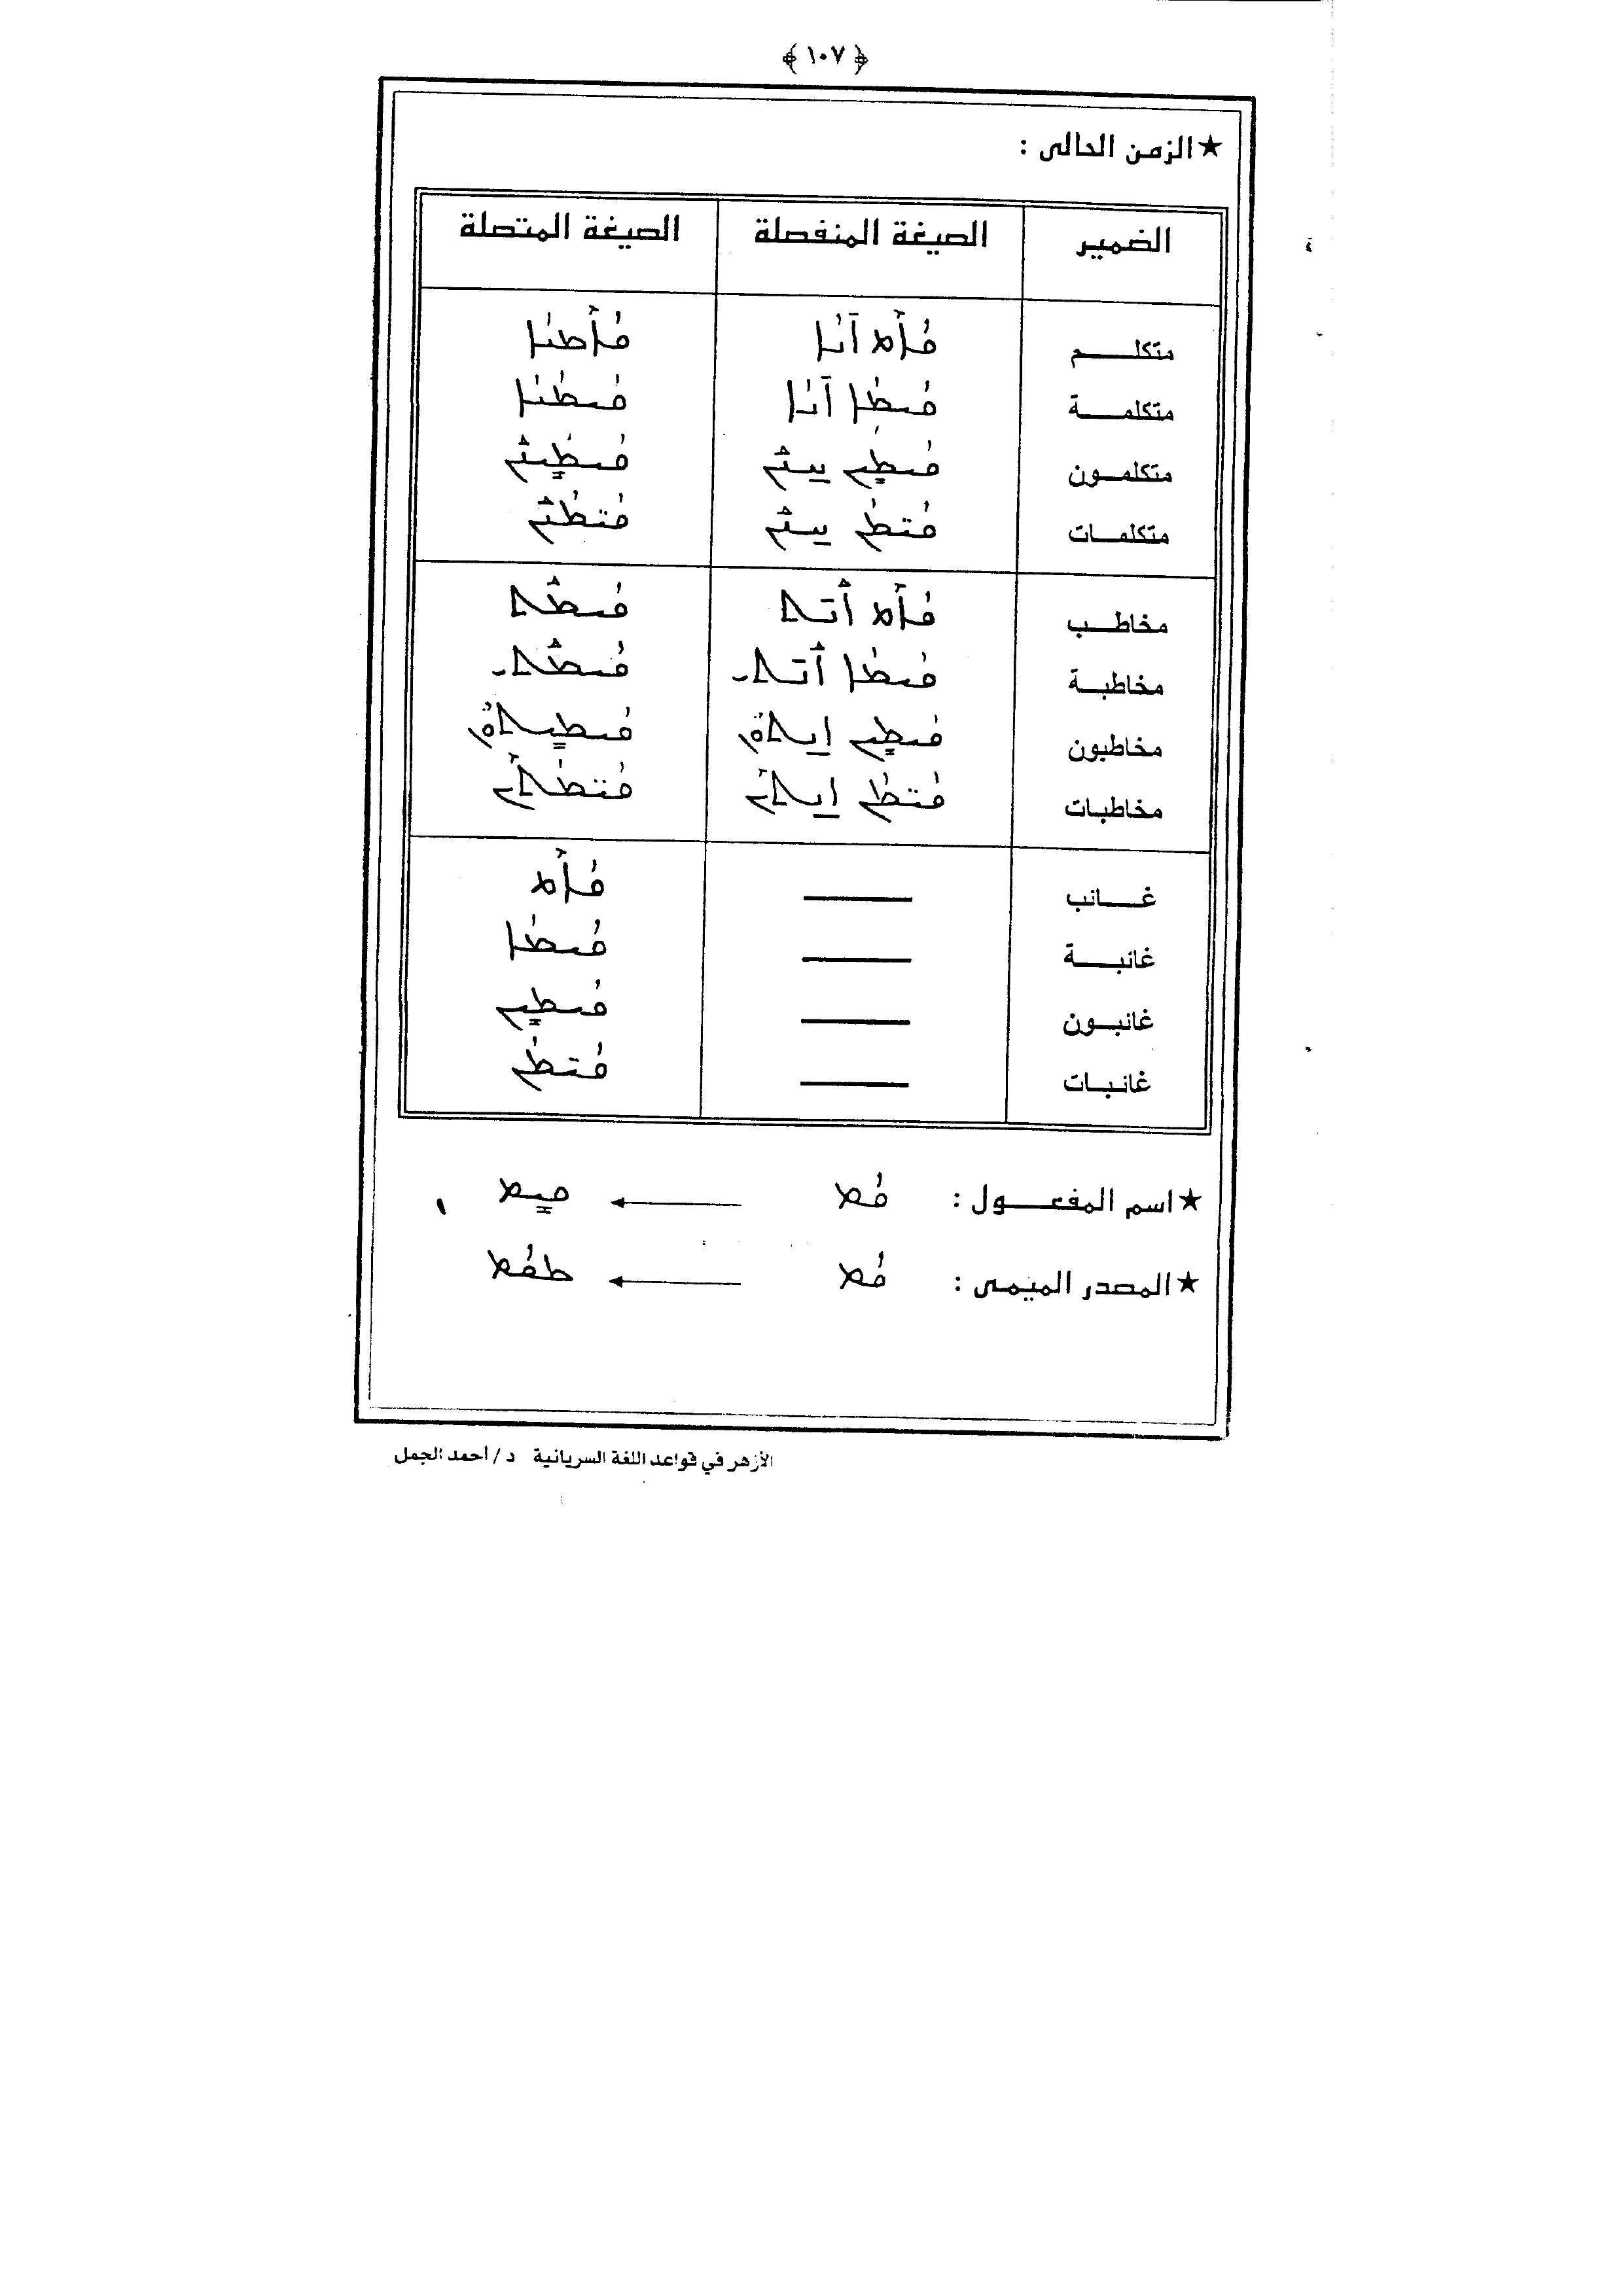 ﴿١٠٧﴾
★ الزمن الحالى :
الضمير الصيغة المنفصلة الصيغة المتصلة
متكلـــم ܩܳܐܶܡ ܐ̱ܢܳܐ ܩܳܐܶܡܢܳܐ
متكلمـــة ܩܳܝܡܳܐ ܐ̱ܢܳܐ ܩܳܝܡܳܢܳܐ
متكلمـون ܩܳܝܡܺܝܢ ܚܢܰܢ ܩܳܝܡܺܝܢܰܢ
متكلمـات ܩܳܝ̈ܡܳܢ ܚܢܰܢ ܩܳܝ̈ܡܳܢܰܢ
مخاطـب ܩܳܐܶܡ ܐܰܢ̱ܬ ܩܳܝܡܰܬ
مخاطبـة ܩܳܝܡܳܐ ܐܰܢ̱ܬܝ ܩܳܝܡܰܬܝ
مخاطبون ܩܳܝܡܺܝܢ ܐܢ̱ܬܘܽܢ ܩܳܝܡܺܝܬܘܽܢ
مخاطبات ܩܳܝ̈ܡܳܢ ܐܢ̱ܬܶܝܢ ܩܳܝ̈ܡܳܬܶܝܢ
غـــائب ——— ܩܳܐܶܡ
غائبـــة ——— ܩܳܝܡܳܐ
غائبـون ——— ܩܳܝܡܺܝܢ
غائبـات ——— ܩܳܝ̈ܡܳܢ
★ اسم المفعـــول : ܩܳܡ ← ܩܺܝܡ
★ المصدر الميمى : ܩܳܡ ← ܡܩܳܡ
الأزهر في قواعد اللغة السريانية د/ أحمد الجمل